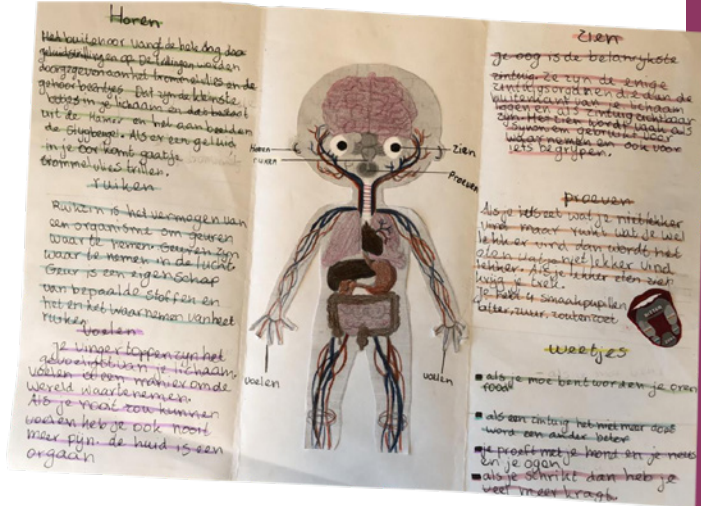 Horen
Het buitenoor vangt de hele dag door
geluidstrillingen op. De trilingen worden
doorgegeven aan het trommelvlies en de
gehoorbeentjes. Dat zijn de kleinste
botjes in je lichaam en dat bestaat
uit de Hamer en het aanbeelden
de stijgbeugel. Als er een geluid
in je oor komt gaat je
trommelvlies trillen.
ruiken
Ruiken is het vermogen van
een organisme om geuren
waar te nemen. Geuren zijn
waar te nemen in de lucht.
Geur is een eigenschap
van bepaalde stoffen en
het en het waarnemen van heet
ruiken
Voelen
je vingertoppen zijn het
gevoeligst van je lichaam,
voelen is een manier om de
wereld waartenemen.
Als je nooit zou kunnen
voelen heb je ook nooit
meer pijn. de huid is een
orgaan
Horen
ruiken
zien
Proeven
voelen
voelen
zien
je oog is de belangrijkste
zintuig. Ze zijn de enige
zintuigorganen die aan de
buitenkant van je lichaam
liggen en als zintuig zichtbaar
zijn. Het zien wordt vaak als
synoniem gebruikt voor
waarnemen en ook voor
iets begrijpen.
proeven
Als je iets eet wat je niet lekker
vind maar ruikt wat je wel
lekker vind dan wordt het
eten wat je niet lekker vind
lekker. Als je lekker eten ziet
krijg je trek.
Je hebt 4 smaakpupillen
bitter, zuur, zout en zoet
weetjes
als je moe bent worden je oren
rood
als een zintuig het niet meer doet
word een ander beter
je proeft met je mond en je neus
en je ogen
als je schrikt dan heb je
veel meer kracht